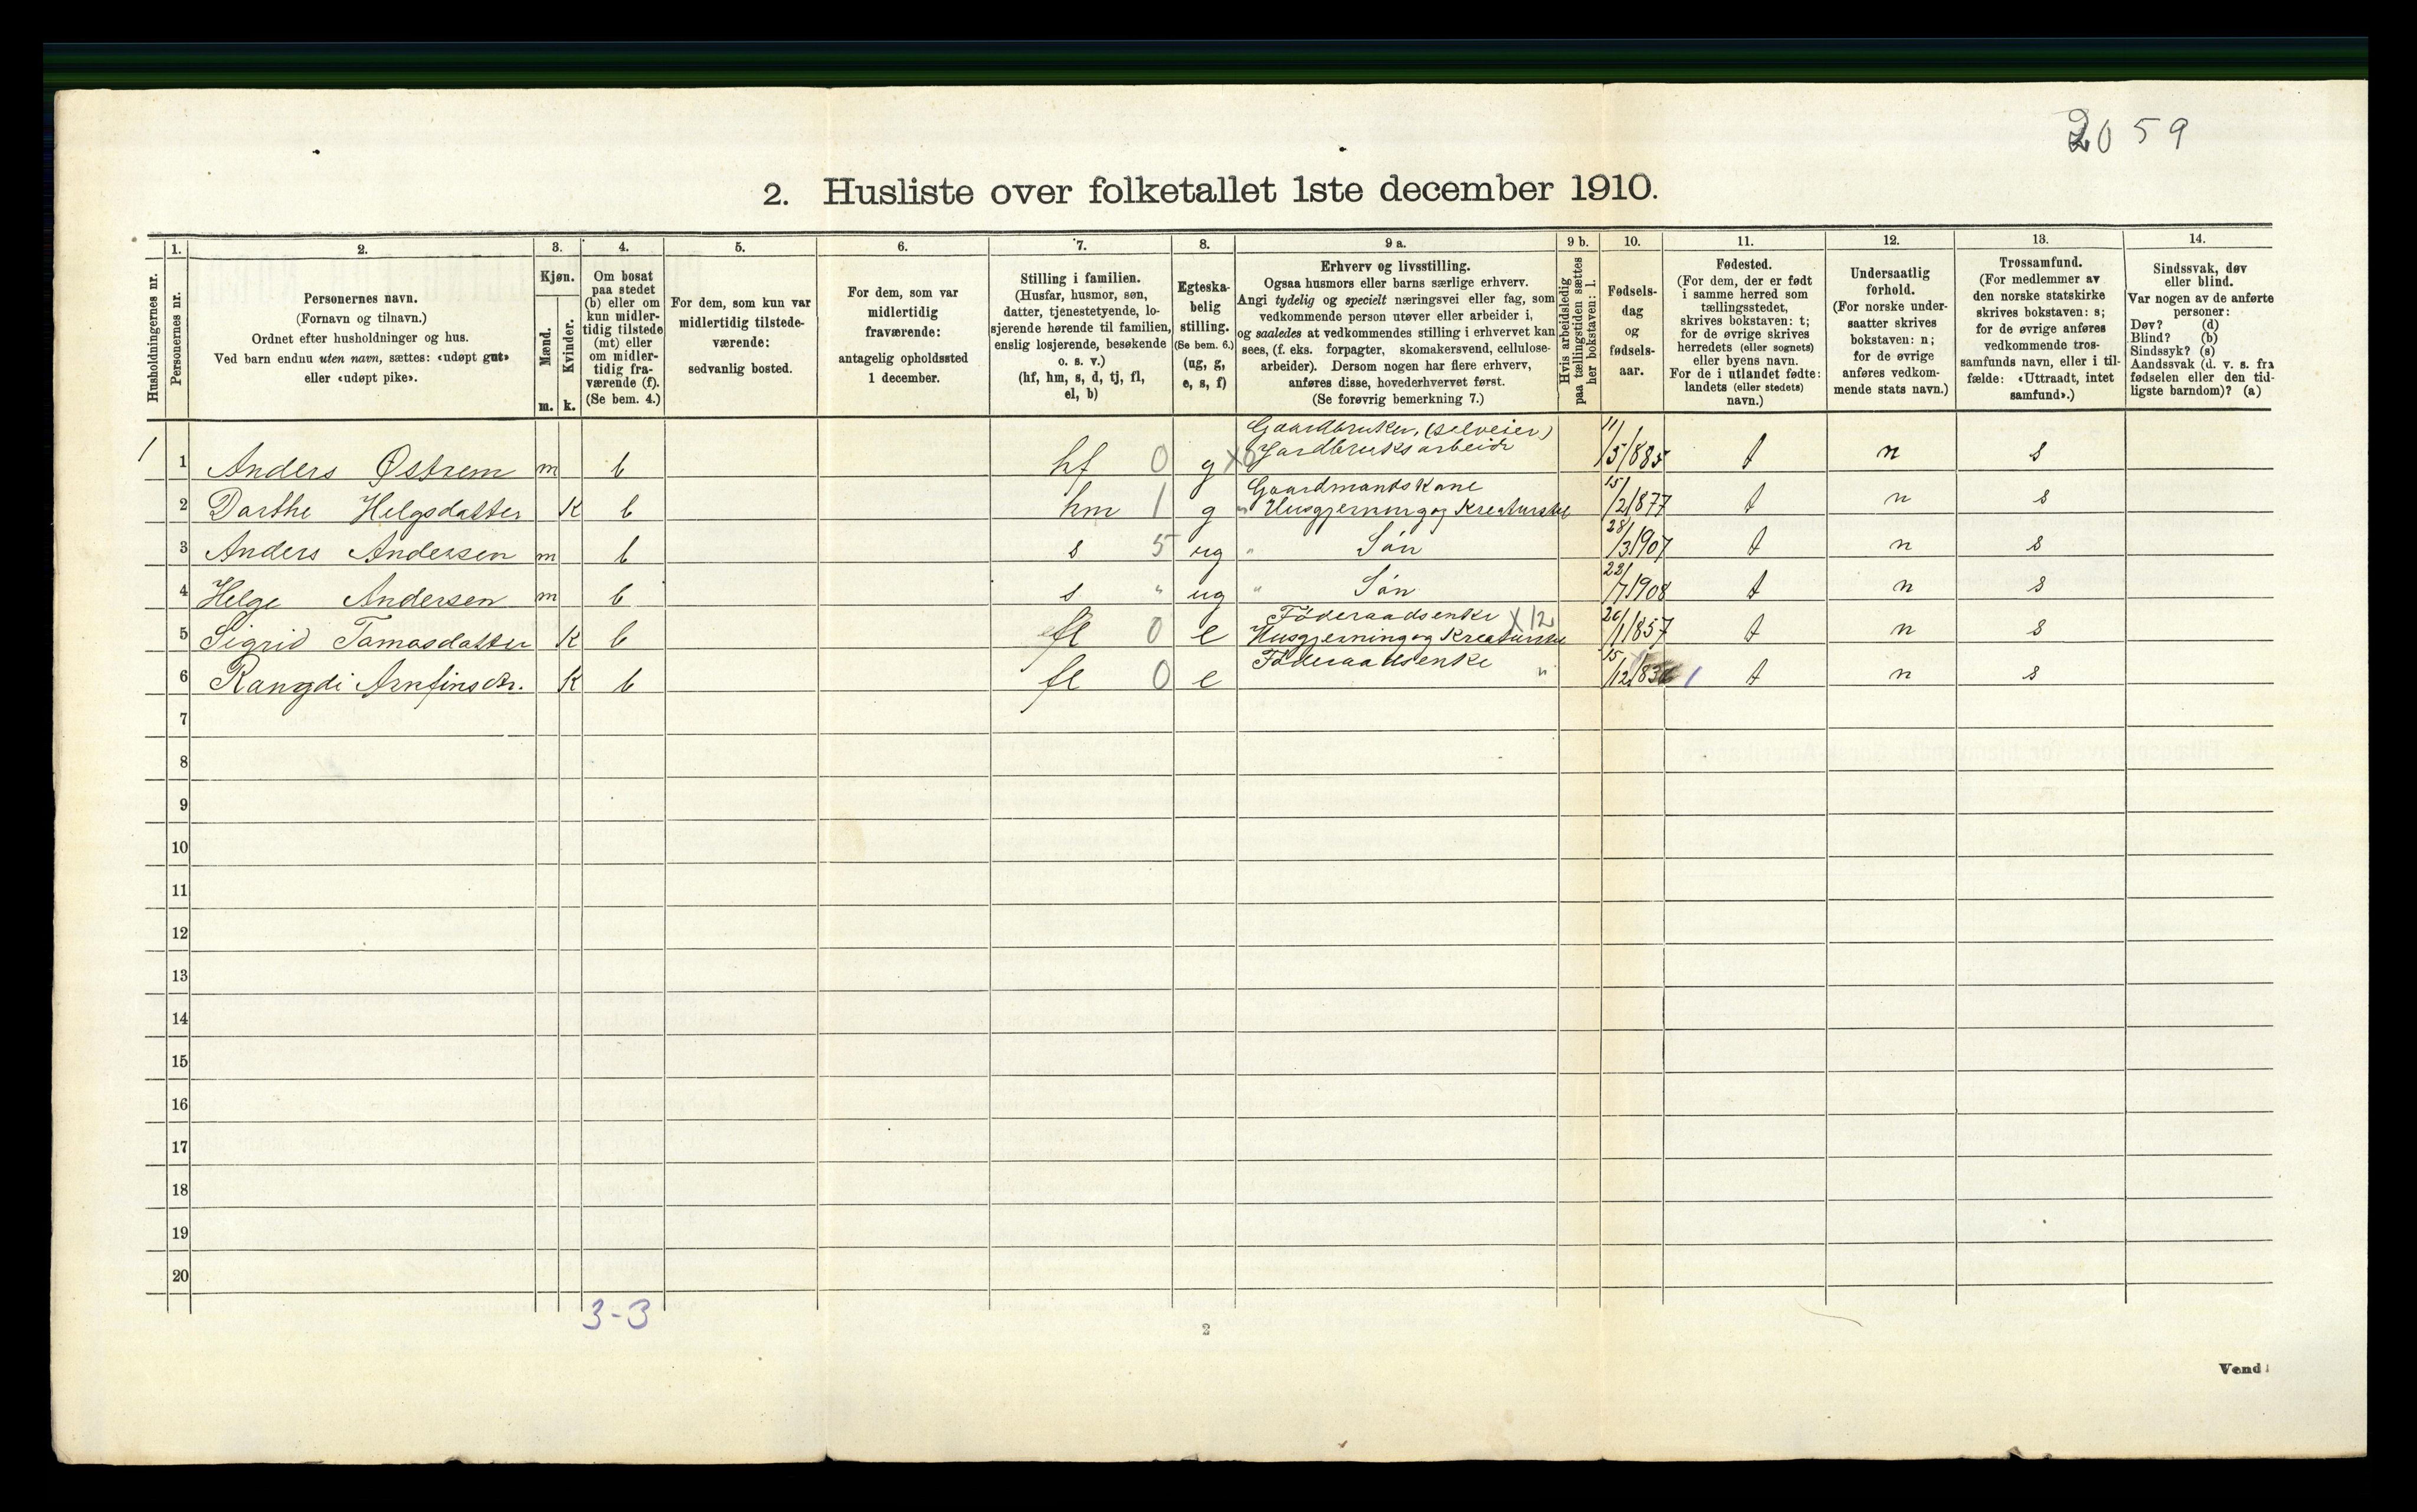 2059
2. Husliste over folketallet 1ste december 1910.
Husholdningernes nr.
1. Personernes nr.
2. Personernes navn.
(Fornavn og tilnavn.)
Ordnet efter husholdninger og hus.
Ved barn endnu uten navn, sættes: «udøpt gut»
eller «udøpt pike».
3. Kjøn.
Mænd. m.
Kvinder. k.
4. Om bosat
paa stedet
(b) eller om
kun midler-
tidig tilstede
(mt) eller
om midler-
tidig fra-
værende (f).
(Se bem. 4.)
5. For dem, som kun var
midlertidig tilstede-
værende:
sedvanlig bosted.
6. For dem, som var
midlertidig
fraværende:
antagelig opholdssted
1 december.
7. Stilling i familien.
(Husfar, husmor, søn,
datter, tjenestetyende, lo-
sjerende hørende til familien,
enslig losjerende, besøkende
o. s. v.)
(hf, hm, s, d, tj, fl,
el, b)
8. Egteska-
belig
stilling.
(Se bem. 6.)
(ug, g,
e, s, f)
9 a. Erhverv og livsstilling.
Ogsaa husmors eller barns særlige erhverv.
Angi tydelig og specielt næringsvei eller fag, som
vedkommende person utøver eller arbeider i,
og saaledes at vedkommendes stilling i erhvervet kan
sees, (f. eks. forpagter, skomakersvend, cellulose-
arbeider). Dersom nogen har flere erhverv,
anføres disse, hovederhvervet først.
(Se forøvrig bemerkning 7.)
9 b. Hvis arbeidsledig
paa tællingstiden sættes
her bokstaven: l.
10. Fødsels-
dag
og
fødsels-
aar.
11. Fødested.
(For dem, der er født
i samme herred som
tællingsstedet,
skrives bokstaven: t;
for de øvrige skrives
herredets (eller sognets)
eller byens navn.
For de i utlandet fødte:
landets (eller stedets)
navn.)
12. Undersaatlig
forhold.
(For norske under-
saatter skrives
bokstaven: n;
for de øvrige
anføres vedkom-
mende stats navn.)
13. Trossamfund.
(For medlemmer av
den norske statskirke
skrives bokstaven: s;
for de øvrige anføres
vedkommende tros-
samfunds navn, eller i til-
fælde: «Uttraadt, intet
samfund».)
14. Sindssvak, døv
eller blind.
Var nogen av de anførte
personer:
Døv? (d)
Blind? (b)
Sindssyk? (s)
Aandssvak (d. v. s. fra
fødselen eller den tid-
ligste barndom)? (a)
Gaardbruker, (selveier)
1 1 Anders Østrem m b hf 0 g Jardbruksarbeide 11/5 1885 t n s
Gaardmandskone
2 Darthe Helgsdatter K b hm 1 g " Husgjerning og Kreaturstel 15/2 1877 t n s
3 Anders Andersen m b s 5 ug " Sön 28/3 1907 t n s
4 Helge Andersen m b s " ug " Sön 22/7 1908 t n s
Föderaadsenke X 12
5 Sigrid Tamasdatter K b fl 0 e Husgjerning og Kreaturstel 26/1 1857 t n s
Föderaadsenke "
6 Rangdi Arnfinsdtr. K b fl 0 e 15/12 1836 1 t n s
7
8
9
10
11
12
13
14
15
16
17
18
19
20
3-3
2
Vend